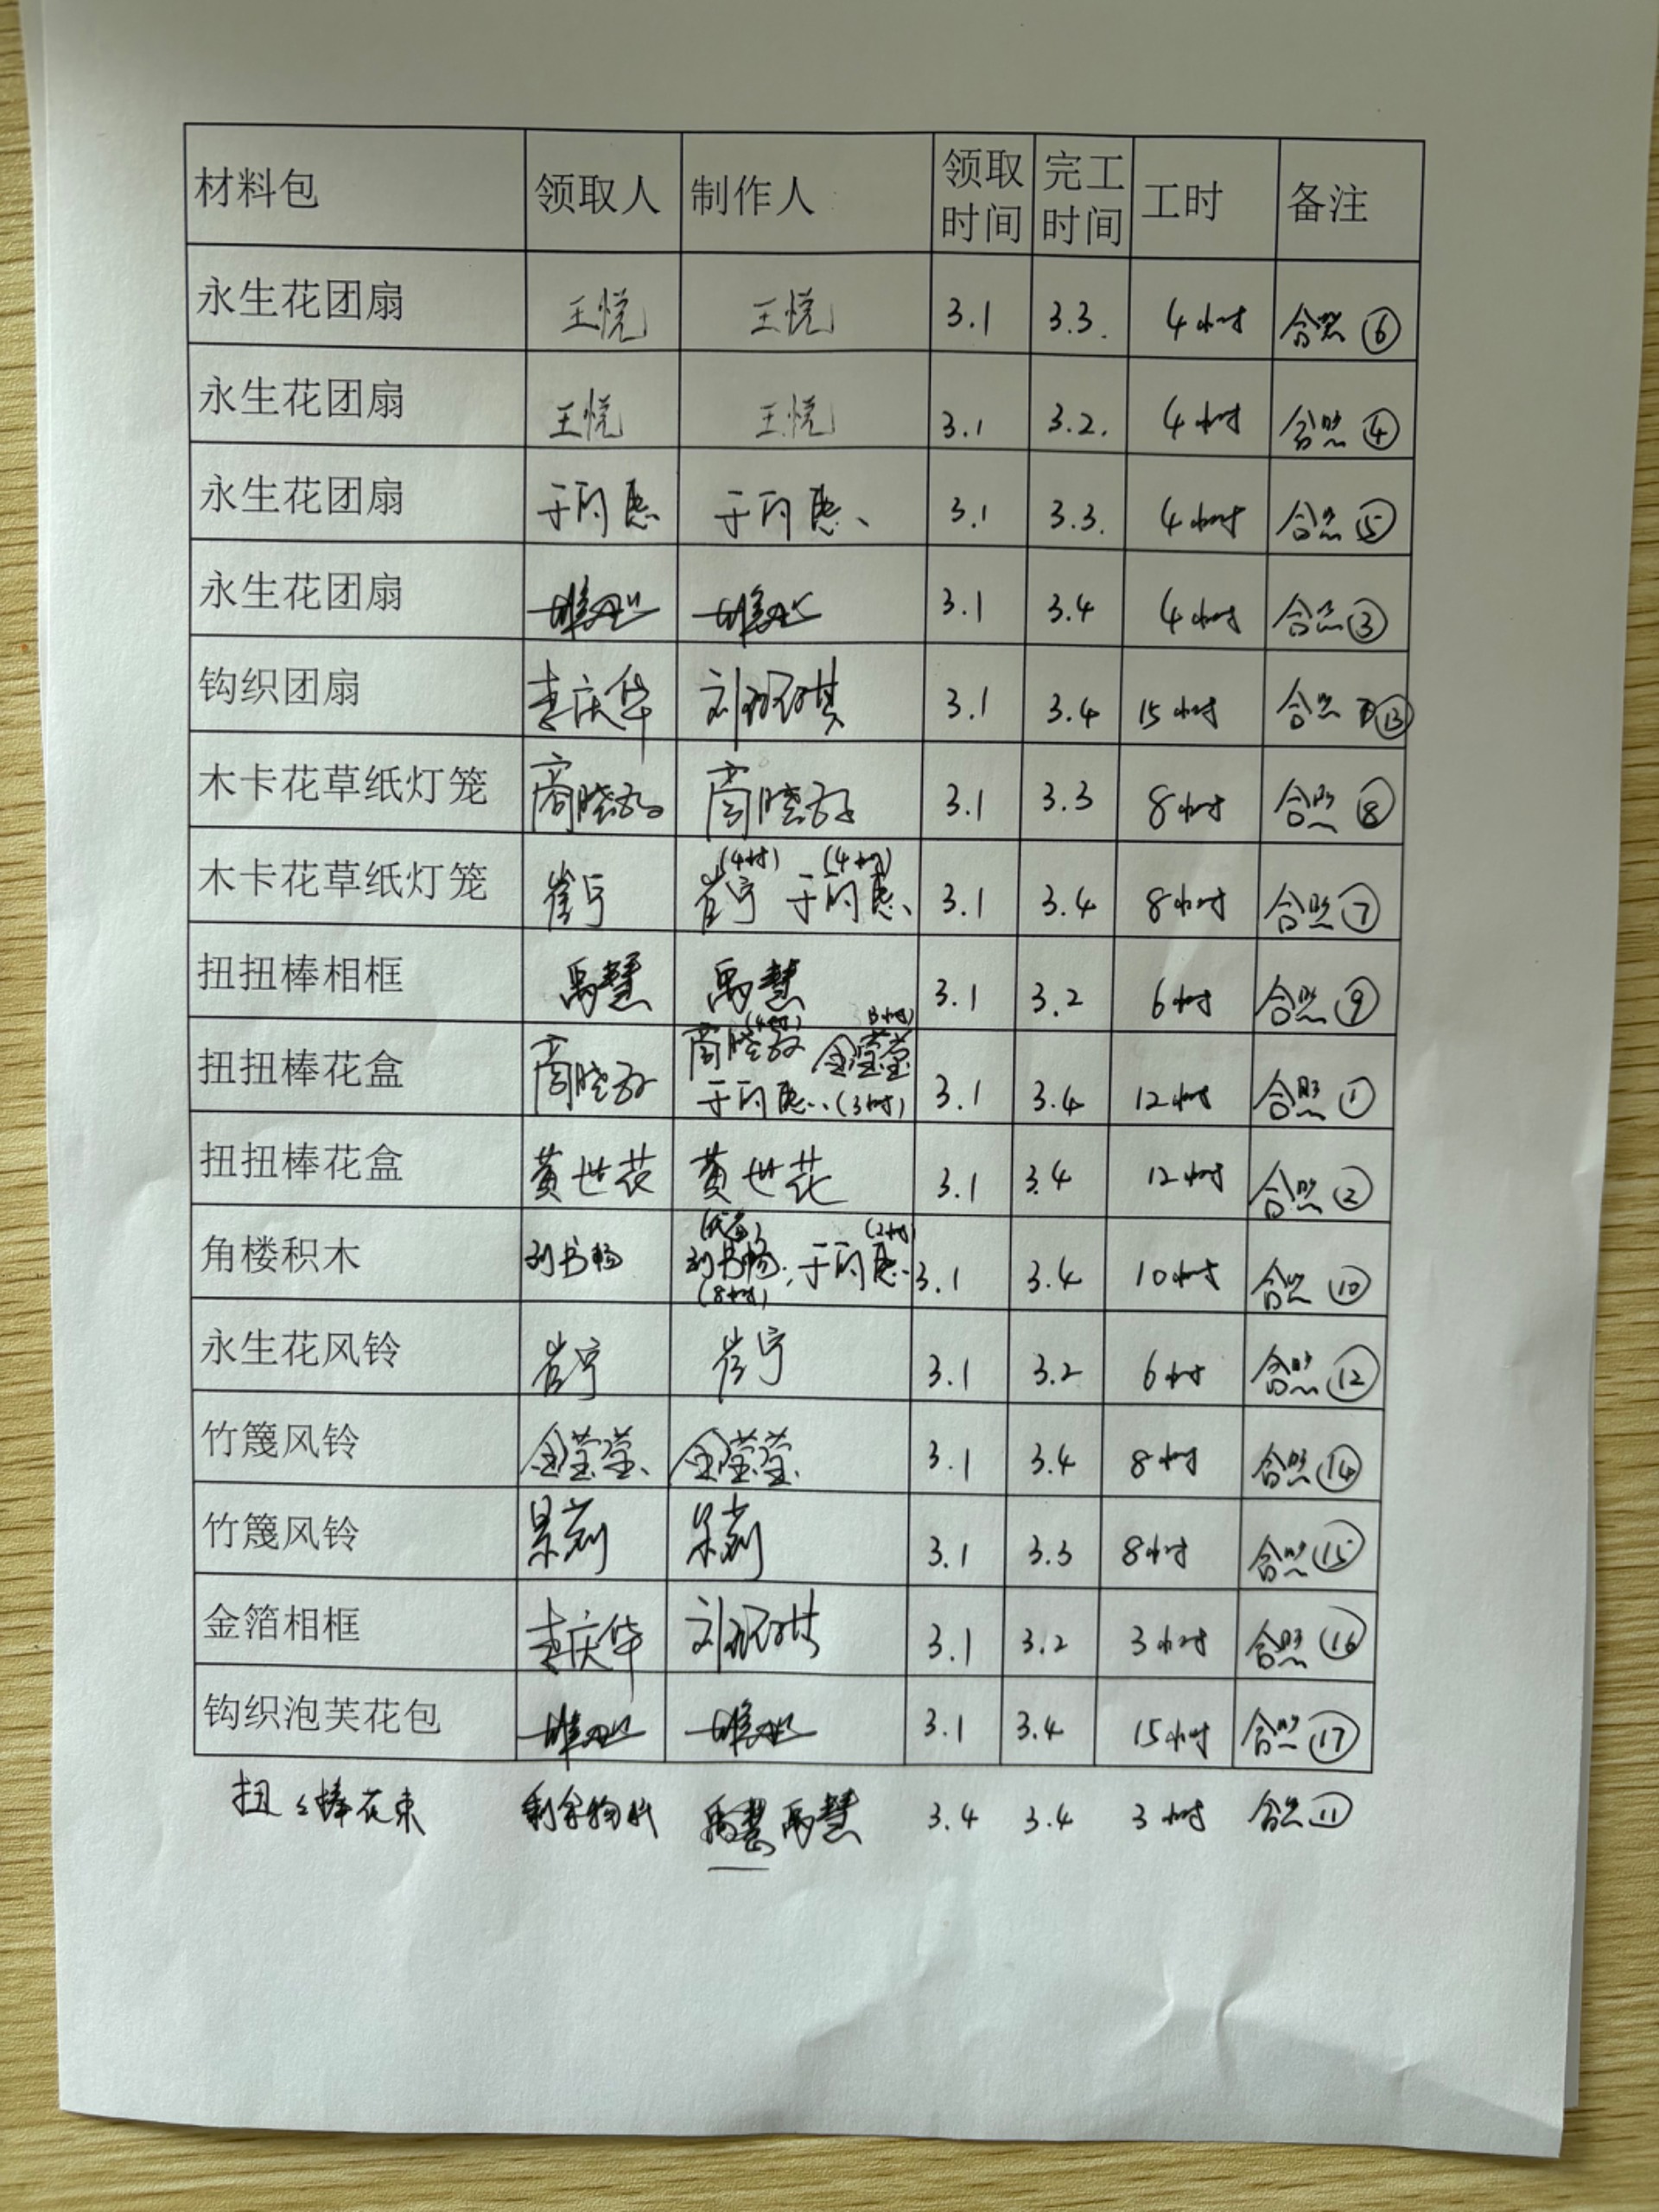 材料包 领取人 制作人 领取时间 完工时间 工时 备注
永生花团扇 王悦 王悦 3.1 3.3. 4小时 合照⑥
永生花团扇 王悦 王悦 3.1 3.2. 4小时 合照④
永生花团扇 3.1 3.3. 4小时 合照⑤
永生花团扇 3.1 3.4 4小时 合照③
钩织团扇 李庆华 3.1 3.4 15小时 合照⑬
木卡花草纸灯笼 3.1 3.3 8小时 合照⑧
木卡花草纸灯笼 崔宁 (4小时) (4小时) 崔宁 3.1 3.4 8小时 合照⑦
扭扭棒相框 禹慧 禹慧 3.1 3.2 6小时 合照⑨
扭扭棒花盒 (4小时) (3小时) 金莹莹 (3小时) 3.1 3.4 12小时 合照①
扭扭棒花盒 黄世花 黄世花 3.1 3.4 12小时 合照②
角楼积木 刘书畅 刘书畅 (8小时) (2小时) 3.1 3.4 10小时 合照⑩
永生花风铃 崔宁 崔宁 3.1 3.2 6小时 合照⑫
竹篾风铃 金莹莹 金莹莹 3.1 3.4 8小时 合照⑭
竹篾风铃 景莉 景莉 3.1 3.3 8小时 合照⑮
金箔相框 李庆华 3.1 3.2 3小时 合照⑯
钩织泡芙花包 3.1 3.4 15小时 合照⑰
扭扭棒花束 剩余物料 禹慧 3.4 3.4 3小时 合照⑪